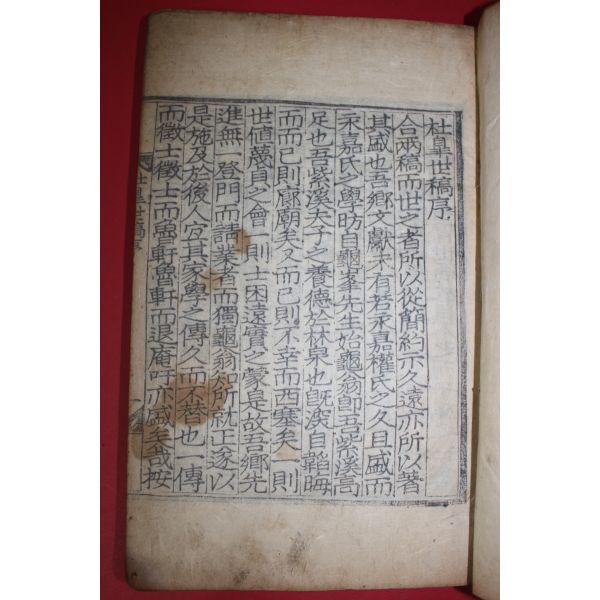 杜臯世稿序
合兩稿而世之者所以從簡約示久遠亦所以著
其盛也吾鄉文獻未有若永嘉權氏之久且盛而
永嘉氏之學昉自龜峯先生始龜翁卽吾紫溪高
足也吾紫溪夫子之養德於林泉也旣深自韜晦
而而已則廊廟矣又而已則不幸而西塞矣一則
世値蔑貞之會一則士困遠實之蒙是故吾鄉先
進無一登門而請業者而獨龜翁知所就正遂以
是施及於後人宜其家學之傳久而不替也一傳
而徵士徵士而魯軒魯軒而退庵吁亦盛矣哉按
杜臯世稿序